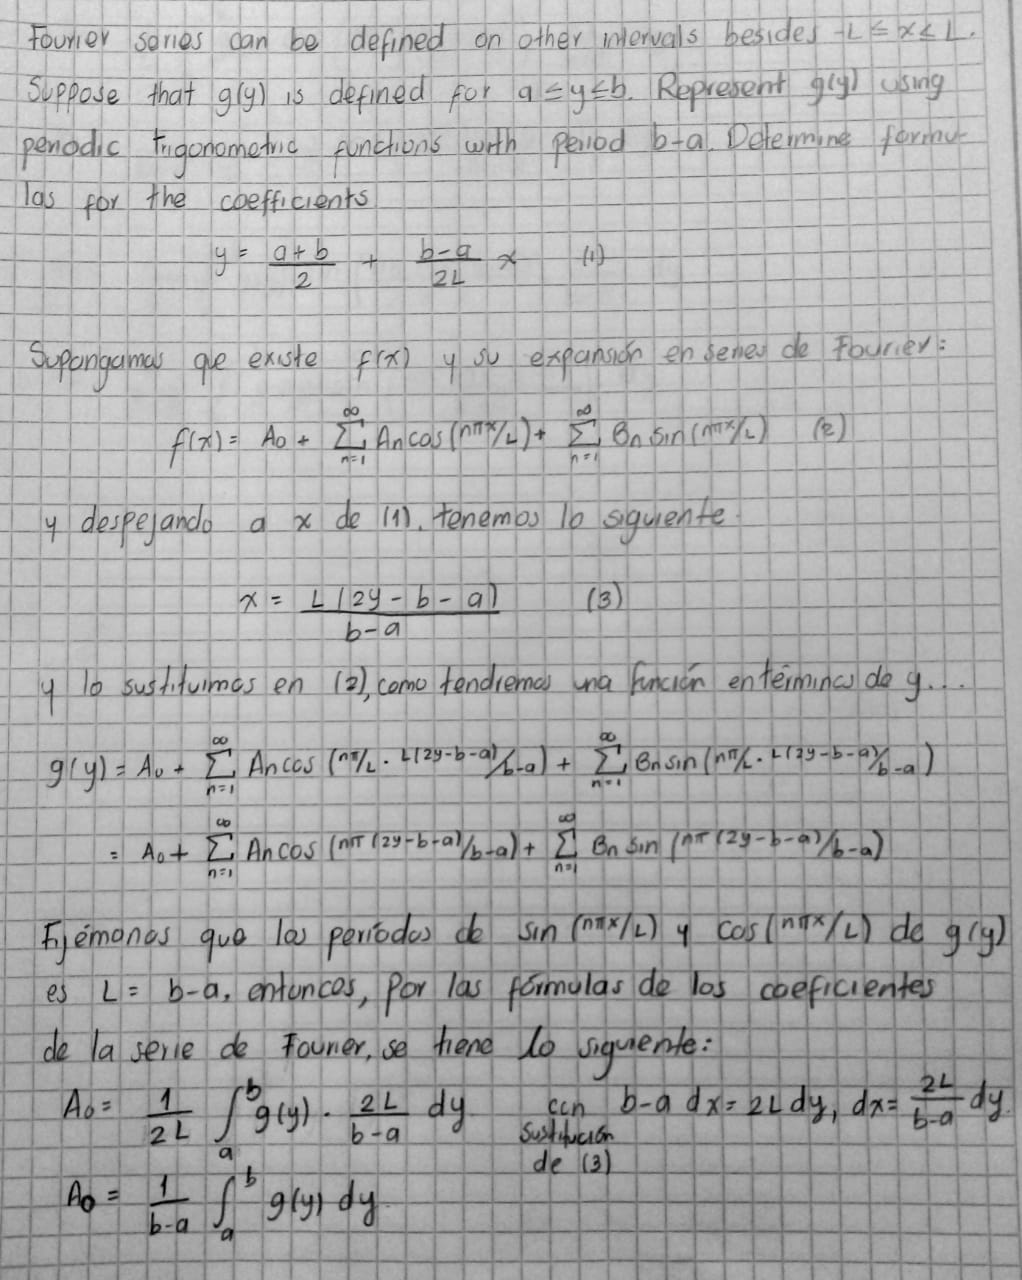 Fourier series can be defined on other intervals besides -L ≤ x ≤ L.
Suppose that g(y) is defined for a ≤ y ≤ b. Represent g(y) using
periodic trigonometric functions with period b-a. Determine formu-
las for the coefficients
y = \frac{a+b}{2} + \frac{b-a}{2L} x (1)
Supongamos que existe f(x) y su expansión en series de Fourier:
f(x) = A_0 + \sum_{n=1}^{∞} A_n cos(nπx/L) + \sum_{n=1}^{∞} B_n sin(nπx/L) (2)
y despejando a x de (1), tenemos lo siguiente.
x = \frac{L(2y-b-a)}{b-a} (3)
y lo sustituimos en (2), como tendremos una función en términos de y...
g(y) = A_0 + \sum_{n=1}^{∞} A_n cos(nπ/L · L(2y-b-a)/b-a) + \sum_{n=1}^{∞} B_n sin(nπ/L · L(2y-b-a)/b-a)
= A_0 + \sum_{n=1}^{∞} A_n cos(nπ(2y-b-a)/b-a) + \sum_{n=1}^{∞} B_n sin(nπ(2y-b-a)/b-a)
Fijémonos que los períodos de sin(nπx/L) y cos(nπx/L) de g(y)
es L = b-a, entonces, por las fórmulas de los coeficientes
de la serie de Fourier, se tiene lo siguiente:
A_0 = \frac{1}{2L} \int_a^b g(y) · \frac{2L}{b-a} dy con b-a dx = 2L dy, dx = \frac{2L}{b-a} dy.
sustitución
de (3)
A_0 = \frac{1}{b-a} \int_a^b g(y) dy.